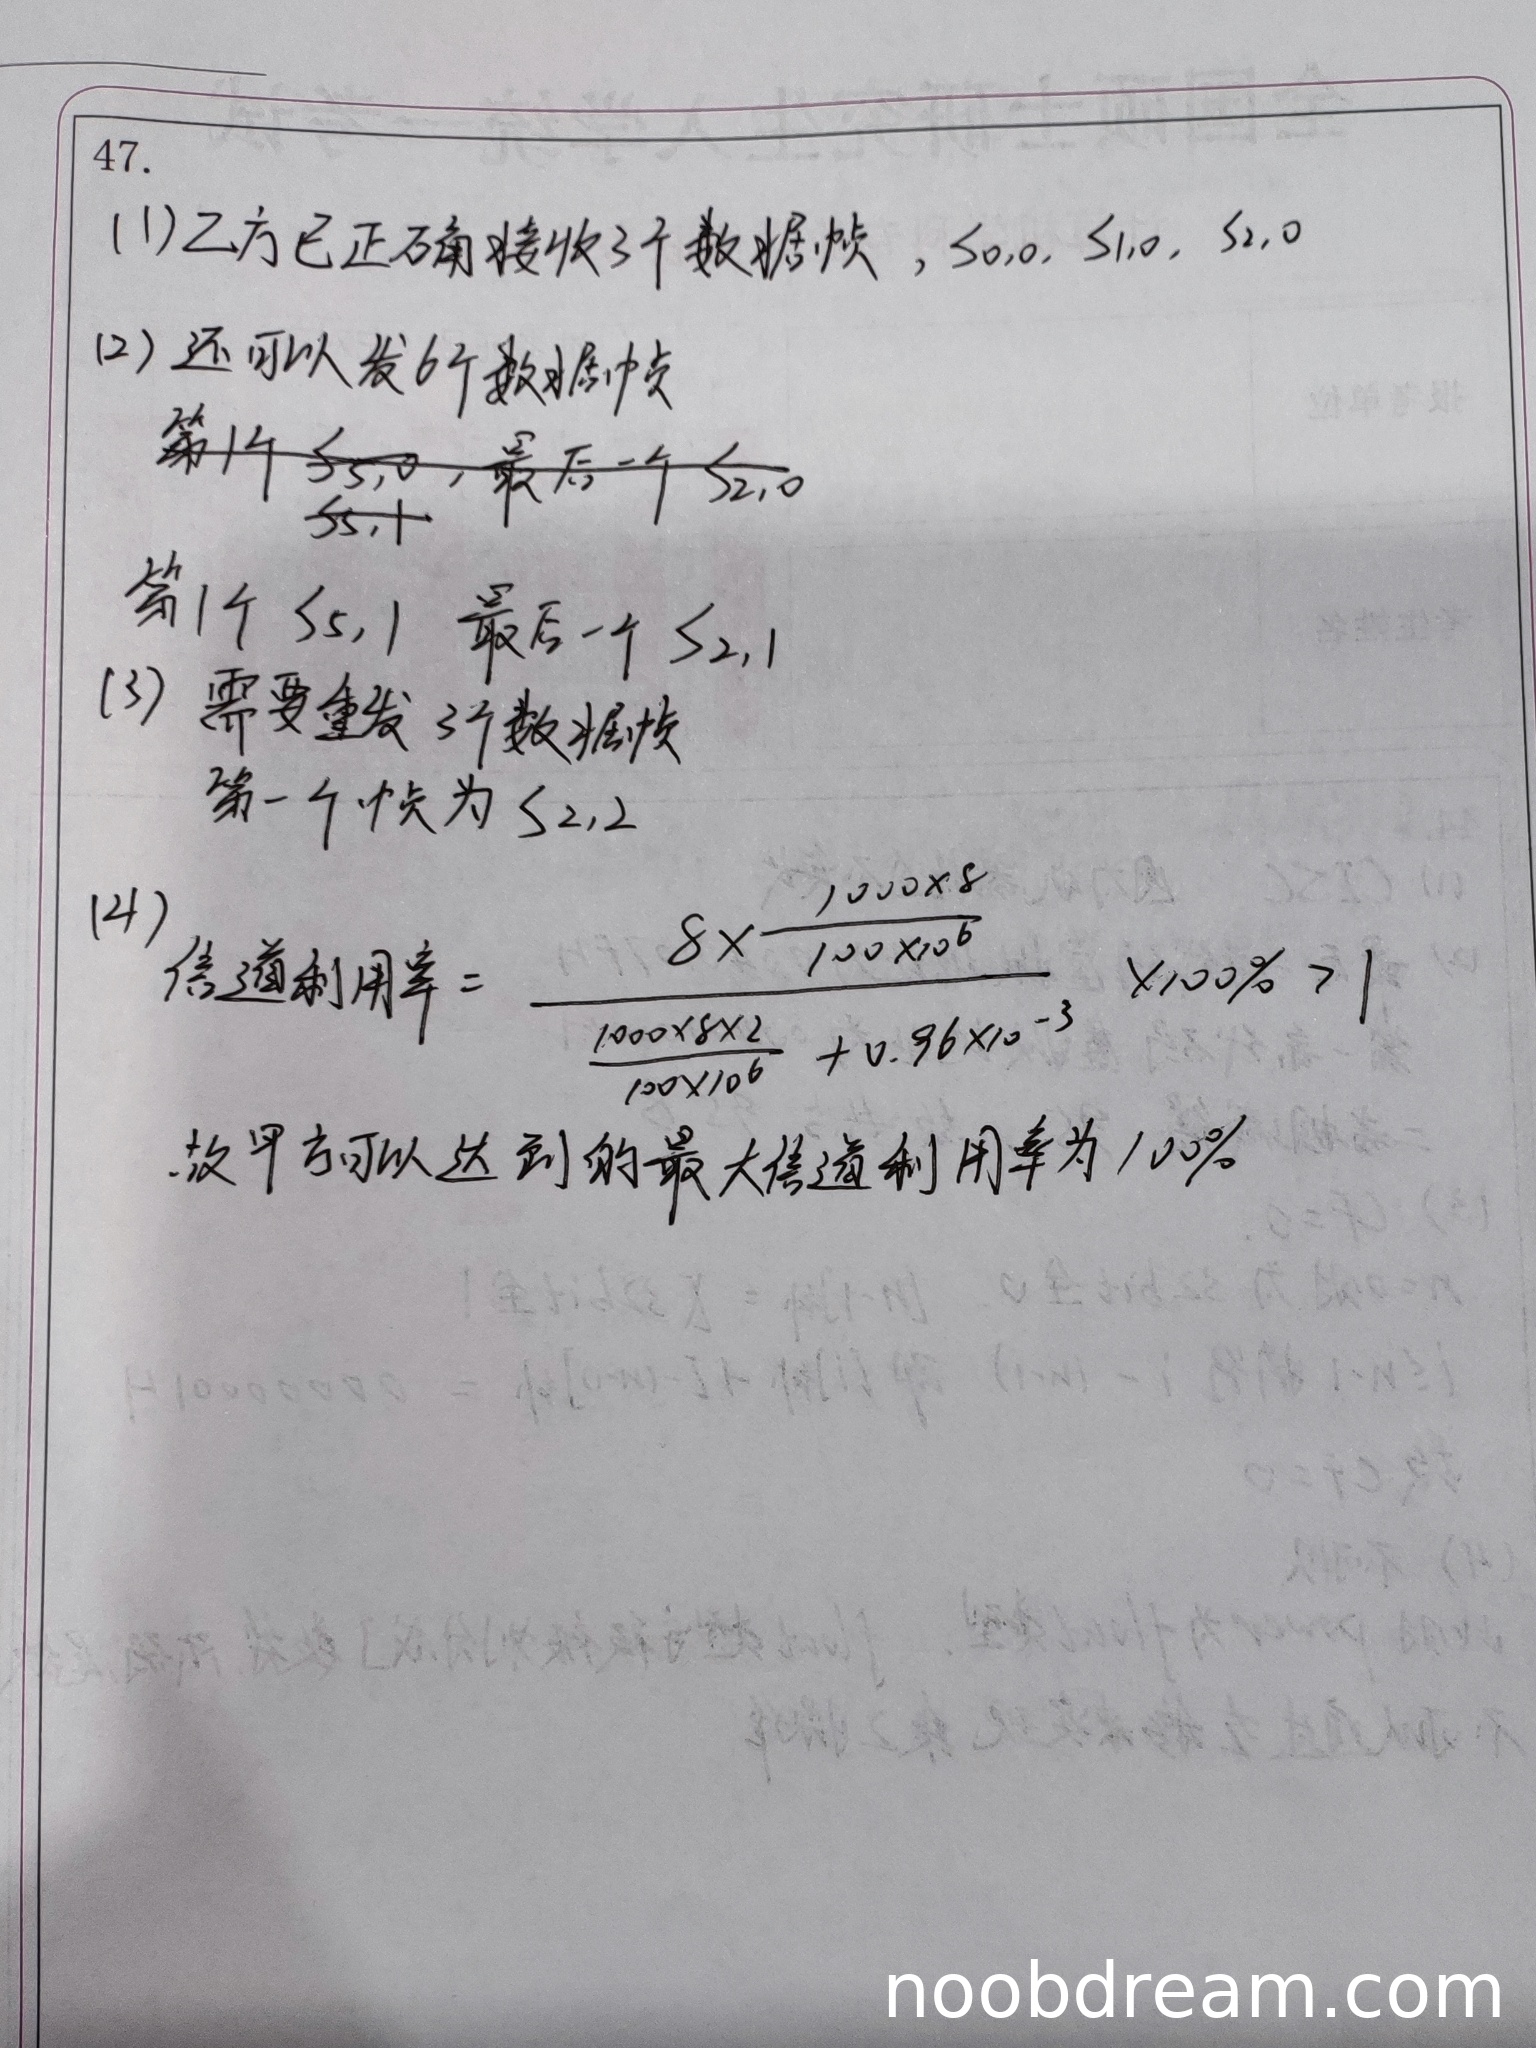 47.
(1) 乙方已正确接收3个数据帧, S0,0, S1,0, S2,0
(2) 还可以发6个数据帧
第1个 S5,0, 最后一个 S2,0
S5,1
第1个 S5,1 最后一个 S2,1
(3) 需要重发 3个数据帧
第一个帧为 S2,2
(4)
信道利用率 = (8×(1000×8)/(100×10⁶))/((1000×8×2)/(100×10⁶) + 0.96×10⁻³) ×100% > 1
故甲方可以达到的最大信道利用率为100%
noobdream.com